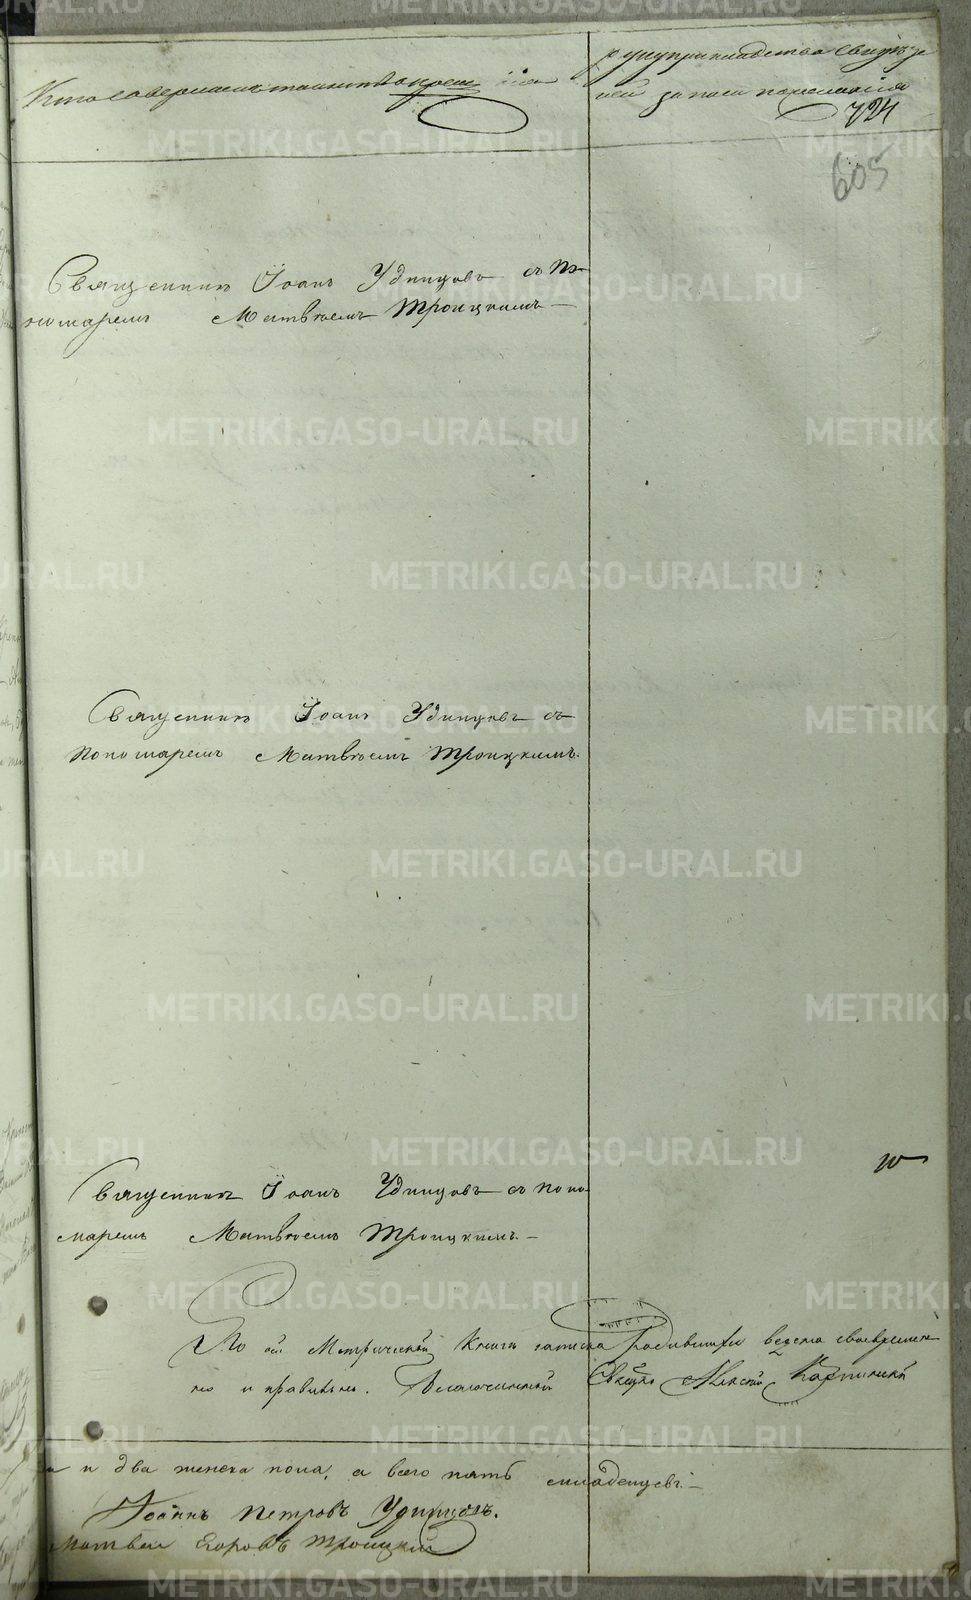 Кто совершалъ таинство крещенія
Рукоприкладство свидѣте
лей записи по желанію
724
605
Священникъ Іоаннъ Удинцовъ съ По
номаремъ Матвѣемъ Троицкимъ
Священникъ Іоаннъ Удинцовъ съ
Пономаремъ Матвѣемъ Троицкимъ.
Священникъ Іоаннъ Удинцовъ съ поно
маремъ Матвѣемъ Троицкимъ.
По сей Метрической Книгѣ записка родившихся ведена своевремен
но и правильно. Благочинный Священ Карпинский
и два женска пола, а всего пять младенцевъ.
Іоаннъ Петровъ Удинцовъ.
Матвей Егоровъ Троицкій
METRIKI.GASO-URAL.RU